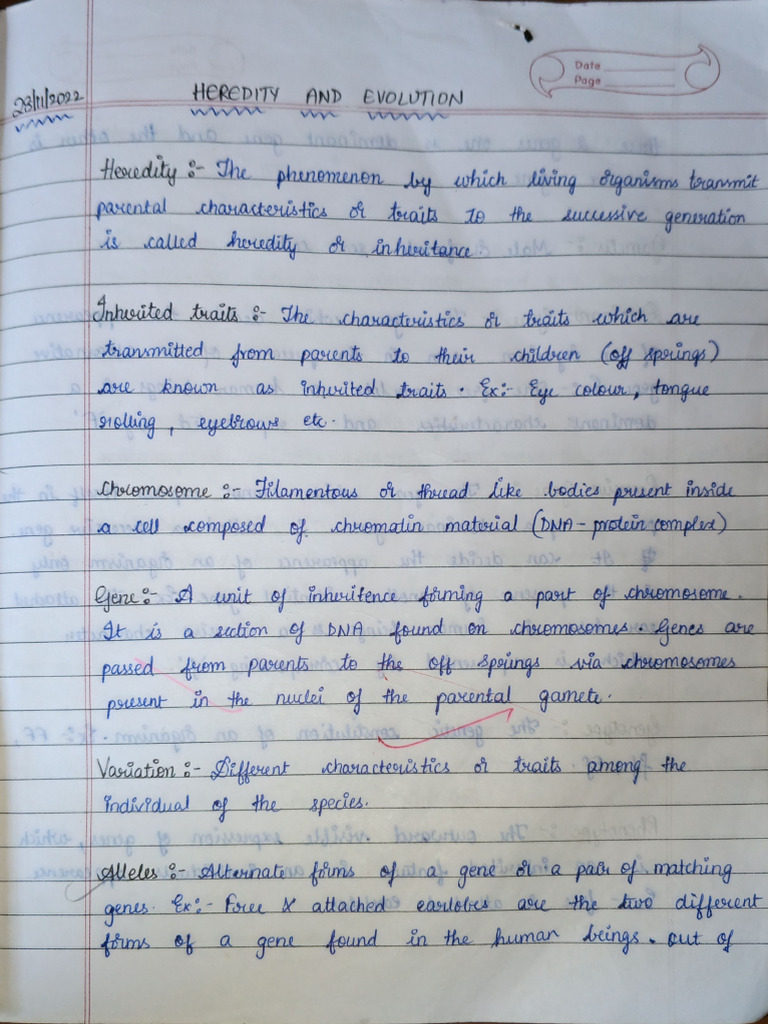 Date
Page
28/11/2022
HEREDITY AND EVOLUTION
Heredity :- The phenomenon by which living organisms transmit
parental characteristics or traits to the successive generation
is called heredity or inheritance
Inherited traits :- The characteristics or traits which are
transmitted from parents to their children (off springs)
are known as inherited traits. Ex:- Eye colour, tongue
rolling, eyebrows etc.
Chromosome :- Filamentous or thread like bodies present inside
a cell composed of chromatin material (DNA - protein complex)
Gene :- A unit of inheritence forming a part of chromosome.
It is a section of DNA found on chromosomes. Genes are
passed from parents to the off springs via chromosomes
present in the nuclei of the parental gamete.
Variation :- Different characteristics or traits among the
individual of the species.
Alleles :- Alternate forms of a gene or a pair of matching
genes. Ex:- Free & attached earlobes are the two different
forms of a gene found in the human beings. out of